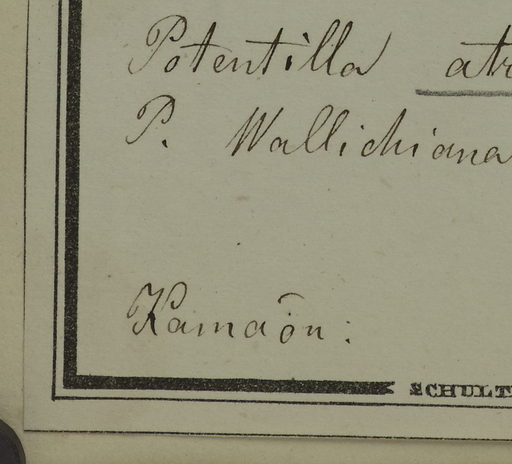 Potentilla atr
P. Wallichiana
Kamaōn:
SCHULT